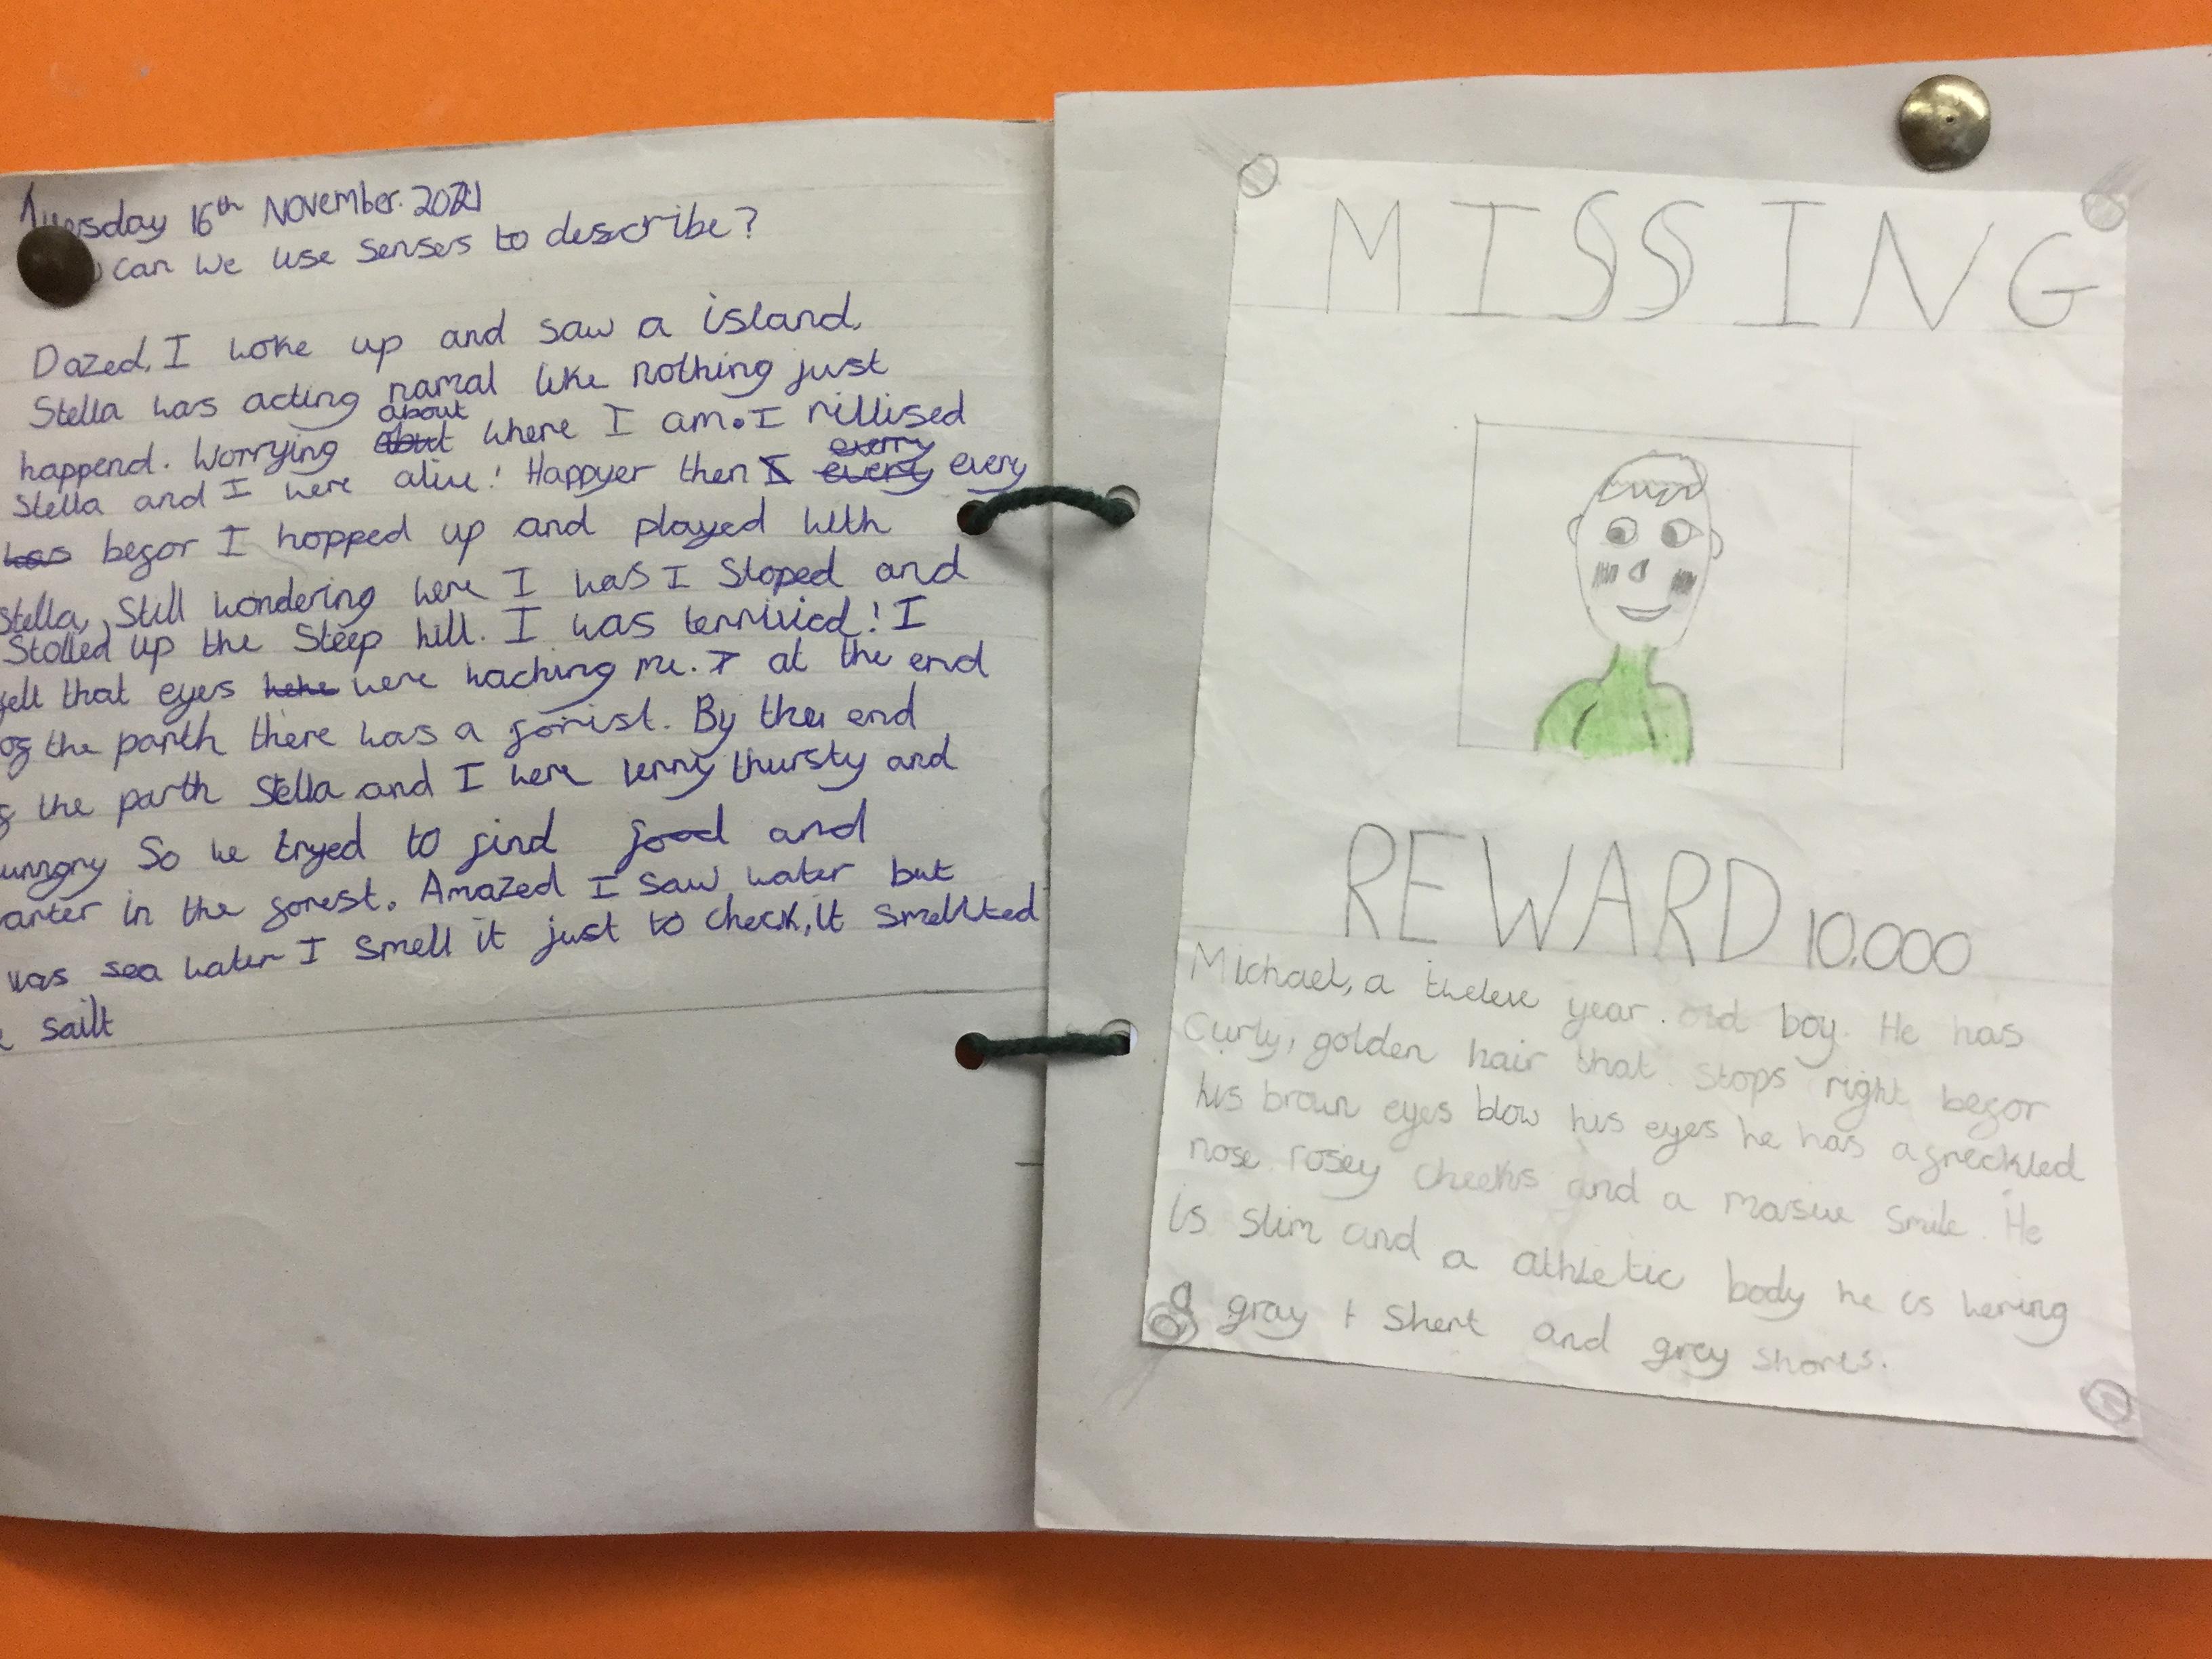 Tuesday 16th November. 2021
can we use senses to describe?
Dazed, I woke up and saw a island.
Stella was acting namal like nothing just
happend. Worrying about where I am. I rillised
Stella and I were alive! Happyer then every
befor I hopped up and played with
Stella, Still wondering were I was I Stoped and
Stolled up the Steep hill. I was terrivied! I
felt that eyes were waching me. at the end
of the parth there was a forrist. By the end
the parth Stella and I were verry thursty and
So we tryed to find food and
in the forest. Amazed I saw water but
was sea water I smell it just to check, it smellted
sailt
MISSING
REWARD 10,000
Michael, a twelve year old boy. He has
Curly, golden hair that stops right befor
his brown eyes blow his eyes he has a freckled
nose rosey cheeks and a masive smile. He
is slim and a athletic body he is wering
a gray t shert and grey shorts.